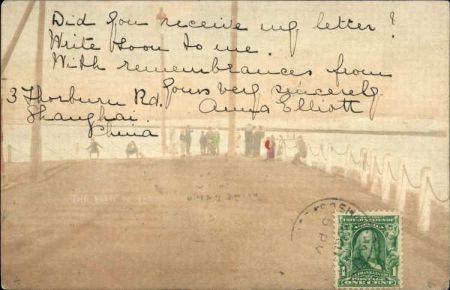 Did you receive my letter?
Write soon to me.
With remembrances from
Yours very sincerely
Anna Elliott
3 Thorburn Rd.
Shanghai.
China
THE
POSTAGE
ONE CENT